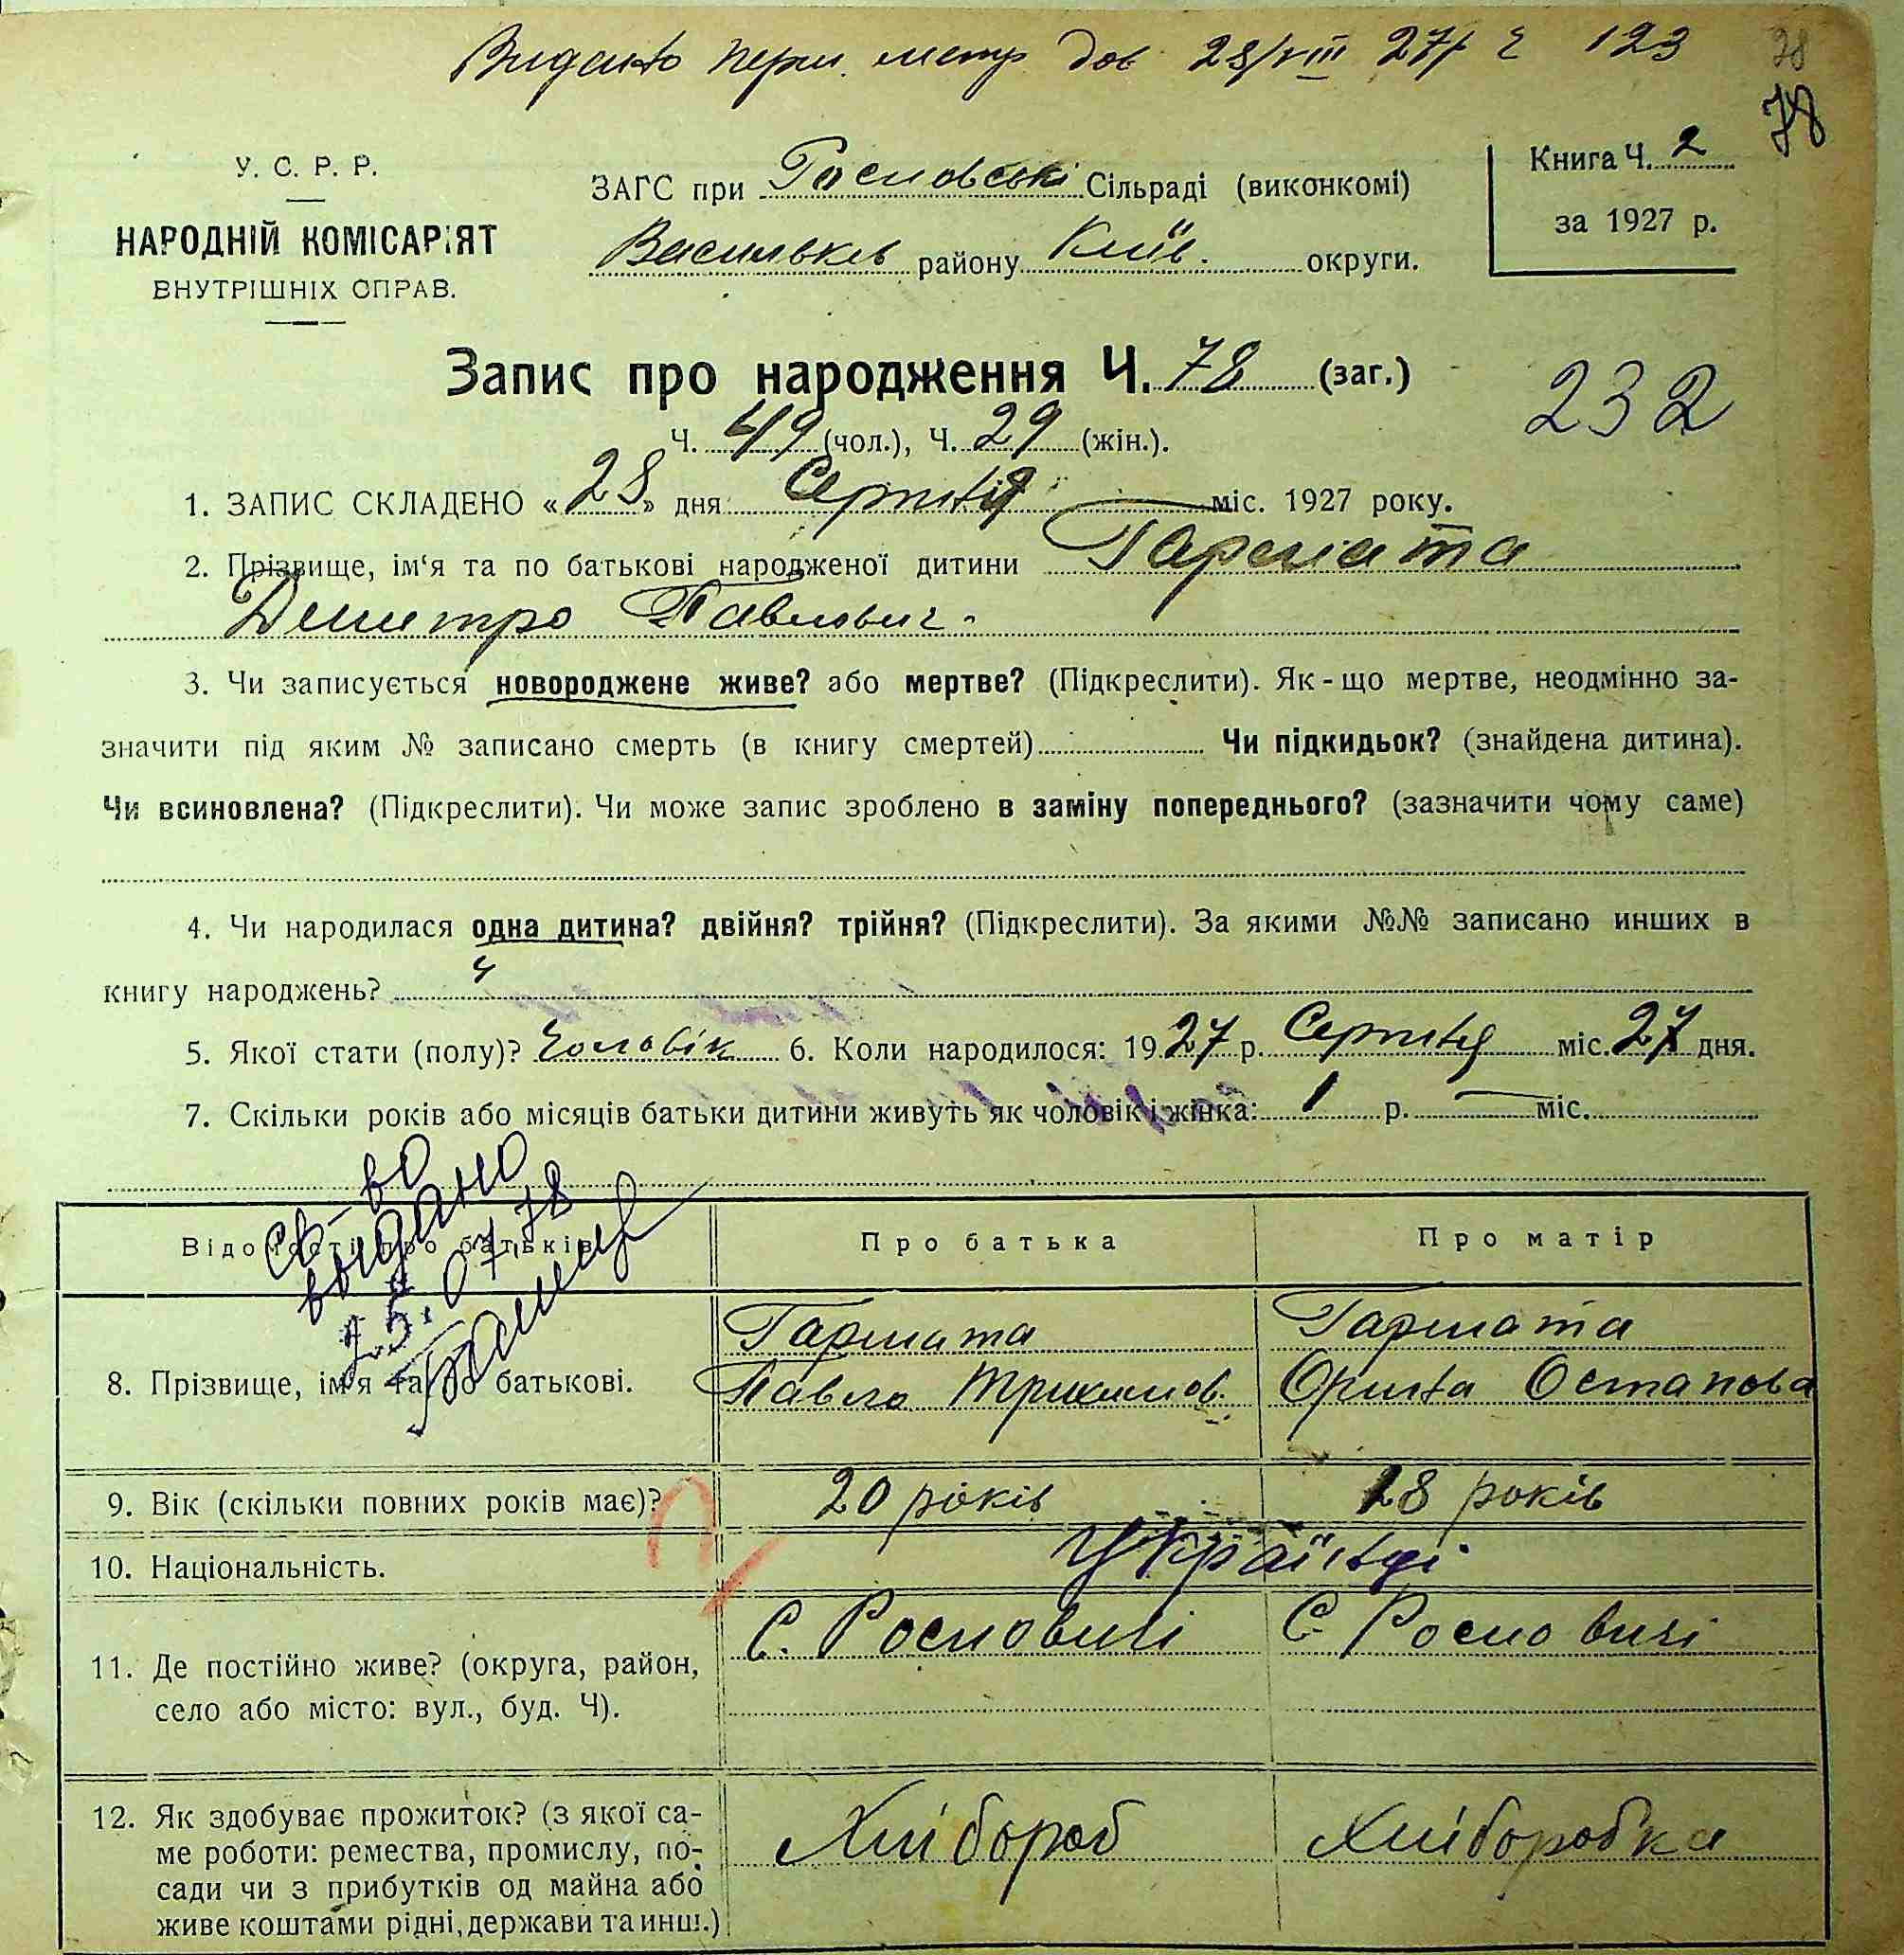 Видано перш. метр. дов 28/VIII 27 р Ч 123
78
У. С. Р. Р.
НАРОДНІЙ КОМІСАР'ЯТ
ВНУТРІШНІХ СПРАВ.
ЗАГС при Росновській Сільраді (виконкомі)
Васильків району Київ. округи.
Книга Ч. 2
за 1927 р.
Запис про народження Ч. 78 (заг.)
232
Ч. 49 (чол.), Ч. 29 (жін.).
1. ЗАПИС СКЛАДЕНО «28» дня Серпня міс. 1927 року.
2. Прізвище, ім'я та по батькові народженої дитини Гармата
Дмитро Павлович.
3. Чи записується новороджене живе? або мертве? (Підкреслити). Як-що мертве, неодмінно за-
значити під яким № записано смерть (в книгу смертей) Чи підкидьок? (знайдена дитина).
Чи всиновлена? (Підкреслити). Чи може запис зроблено в заміну попереднього? (зазначити чому саме)
4. Чи народилася одна дитина? двійня? трійня? (Підкреслити). За якими №№ записано инших в
книгу народжень?
5. Якої стати (полу)? Чоловік 6. Коли народилося: 1927 р. Серпня міс. 27 дня.
7. Скільки років або місяців батьки дитини живуть як чоловік і жінка: 1 р. — міс.
св-во
видано
25.07.78
Відомості про батьків
Про батька
Про матір
8. Прізвище, ім'я та по батькові.
Гармата
Павло Трихимов.
Гармата
Орина Остапова
9. Вік (скільки повних років має)?
20 років
18 років
10. Національність.
Українці
11. Де постійно живе? (округа, район,
село або місто: вул., буд. Ч).
С. Росновичі
С. Росновичі
12. Як здобуває прожиток? (з якої са-
ме роботи: ремества, промислу, по-
сади чи з прибутків од майна або
живе коштами рідні, держави та инш.)
Хлібороб
Хліборобка